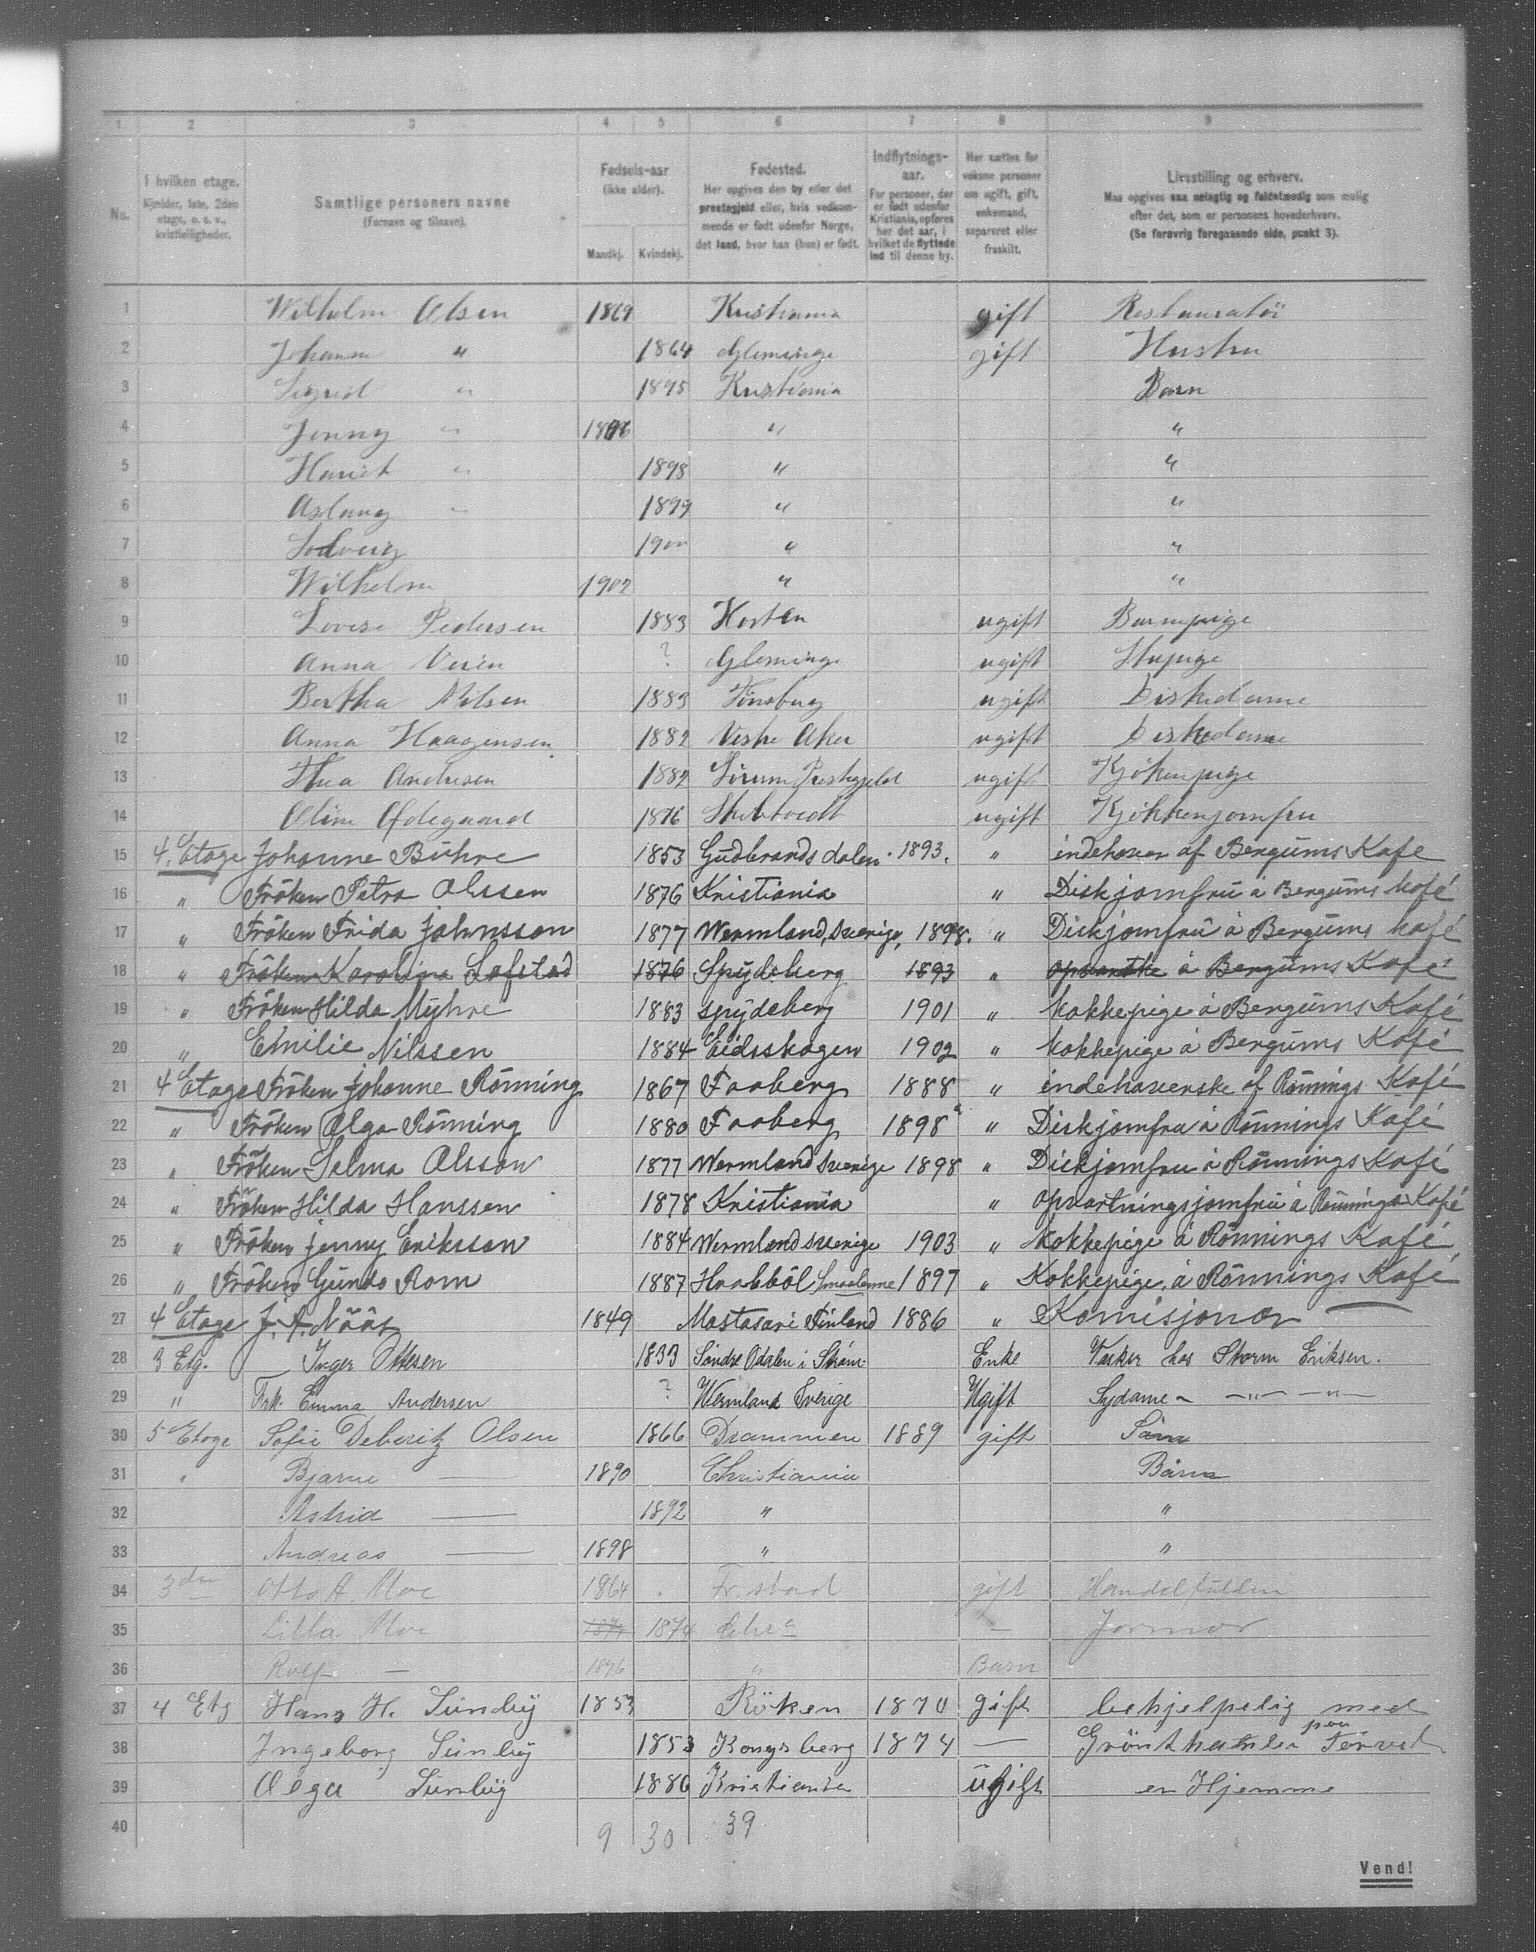 1 2 3 4 5 6 7 8 9
No.
I hvilken etage.
Kjelder, 1ste, 2den
etage, o. s. v.,
kvistleiligheder.
Samtlige personers navne
(Fornavn og tilnavn).
Fødsels-aar
(ikke alder).
Mandkj. Kvindekj.
Fødested.
Her opgives den by eller det
prestegjeld eller, hvis vedkom-
mende er født udenfor Norge,
det land, hvor han (hun) er født.
Indflytnings-
aar.
For personer, der
er født udenfor
Kristiania, opføres
her det aar, i
hvilket de flyttede
ind til denne by.
Her sættes for
voksne personer
om ugift, gift,
enkemand,
separeret eller
fraskilt.
Livsstilling og erhverv.
Maa opgives saa nøiagtig og fuldstændig som mulig
efter det, som er personens hovederhverv.
(Se forøvrig foregaaende side, punkt 3).
1 Wilhelm Olsen 1869 Kristiania gift Restauratør
2 Johanne " 1864 Gleminge gift Hustru
3 Sigrid " 1895 Kristiania Barn
4 Jonny " 1896 " "
5 Harriet " 1898 " "
6 Aslaug " 1899 " "
7 Solveig 1900 " "
8 Wilhelm 1902 " "
9 Lovise Pedersen 1883 Horten ugift Barnepige
10 Anna ? Gleminge ugift Stupige
11 Bertha Nilsen 1883 Tønsberg ugift Diskedame
12 Anna Haagensen 1882 Vestre Aker ugift Diskedame
13 Thea Andresen 1882 Sørum Prestegjeld ugift Kjøkenpige
14 Oline Ødegaard 1876 Skibtvedt ugift Kjøkkenjomfru
15 4. Etage Johanne Buhre 1853 Gudbrandsdalen 1893. " indehaver af Bergums Kafe
16 " Frøken Petra Olssen 1876 Kristiania " Diskjomfru à Bergums kafé
17 " Frøken Frida Johnsson 1877 Wermland, Sverige, 1898. " Diskjomfru à Bergums kafé
18 " Frøken Karolina Lofstad 1876 Spydeberg 1893 " opvartske à Bergums Kafé
19 " Frøken Hilda Myhre 1883 spydeberg 1901 " kokkepige à Bergums Kafé
20 " Emilie Nilssen 1884 Eidsskogen 1902 " kokkepige à Bergums Kafé
21 4 Etage Frøken Johanne Rønning 1867 Faaberg 1888 " indehaverske af Rønnings Kafé
22 " Frøken Olga Rønning 1880 Faaberg 1898 " Diskjomfru à Rønnings Kafé
23 " Frøken Selma Olsson 1877 Wermland Sverige 1898 " Diskjomfru à Rønnings Kafé
24 " Frøken Hilda Hanssen 1878 Kristiania " opvartningsjomfru à Rønnings Kafé
25 " Frøken Jenny Eriksson 1884 Wermland Sverige 1903 " kokkepige à Rønnings Kafé
26 " Frøken Gunda Rom 1887 Haabböl Smaalenne 1897 " Kokkepige à Rønnings Kafé
27 4 Etage J. A. Näät 1849 Mastasari Finland 1886 " Komisjonær
28 3 Etg. Inger Ottesen 1833 Søndre Odalen i Strøm Enke Vasker hos Storm Eriksen.
29 " Frk. Emma Andersen ? Wermland Sverige Ugift Sydame " — " — — " —
30 5 Etage Sofie Deberitz Olsen 1866 Drammen 1889 gift
31 " Bjarne — 1890 Christiania Barn
32 Astrid — 1892 " "
33 Andreas — 1898 " "
34 3den Otto A. Moe 1864 Fr.stad gift
35 Lilla Moe 1874 1874 Chra — Jormor
36 Rolf — 1896 " Barn
37 4 Etg Hans H. Sunby 1853 Röken 1874 gift behjelpelig med
38 Ingeborg Sunby 1853 Kongsberg 1874 — Grönthandler paa Torvet
39 Olga Sunby 1886 Kristiania ugift er Hjemme
40 9 30 39
Vend!